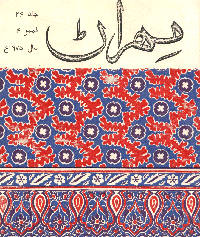 مهراڻ
جلد ۲۴
نمبر ۴
سال ۹۷۵ ع